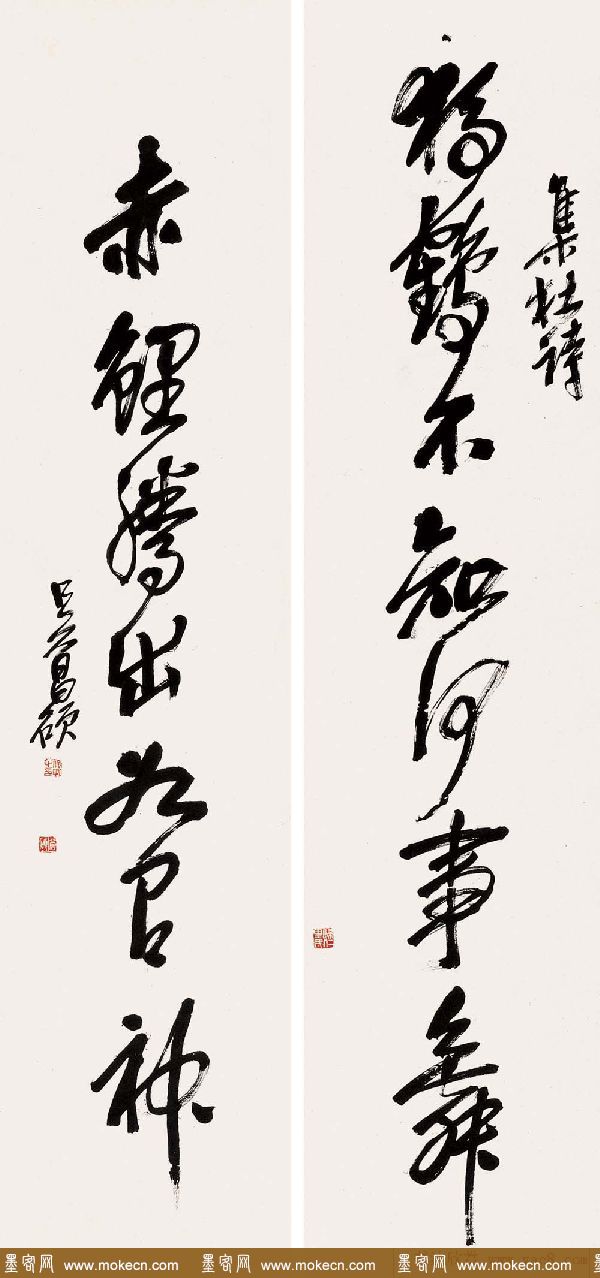 集杜詩
獨鶴不知何事舞
赤鯉騰出如有神
吳昌碩
墨客网 www.mokecn.com 墨客网 www.mokecn.com 墨客网 www.mokecn.com